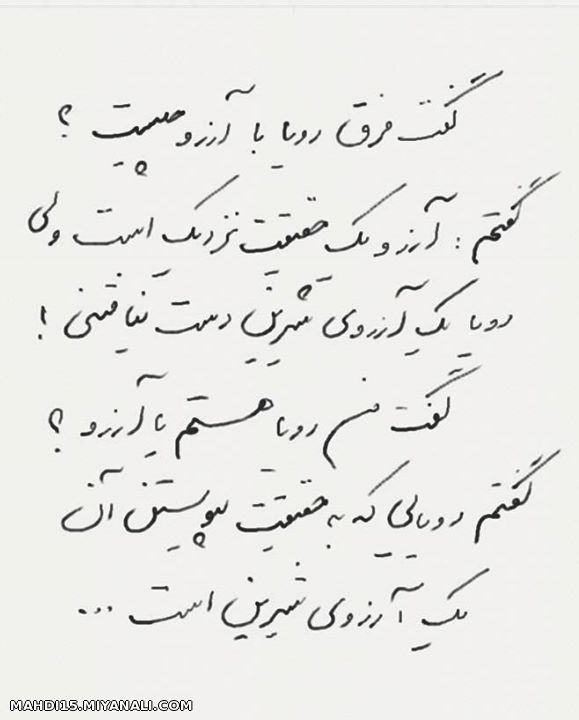 گفت فرق رویا با آرزو چیست ؟
گفتم : آرزو یک حقیقت نزدیک است ولی
رویا یک آرزوی شیرین دست نیافتنی !
گفت من رویا هستم یا آرزو ؟
گفتم رویایی که به حقیقت پیوستن آن
یک آرزوی شیرین است ...
MAHDI15.MIYANALI.COM